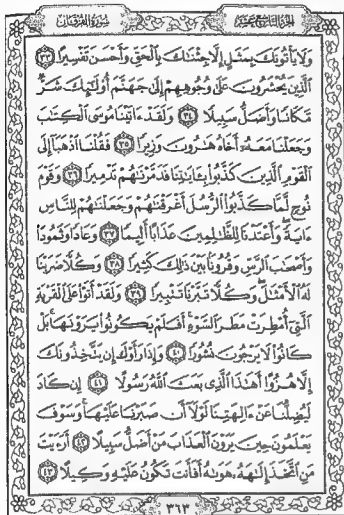 الجزء التاسع عشر سورة الفرقان
وَلَا يَأْتُونَكَ بِمَثَلٍ إِلَّا جِئْنَٰكَ بِٱلْحَقِّ وَأَحْسَنَ تَفْسِيرًا ٣٣
ٱلَّذِينَ يُحْشَرُونَ عَلَىٰ وُجُوهِهِمْ إِلَىٰ جَهَنَّمَ أُو۟لَٰٓئِكَ شَرٌّ
مَّكَانًا وَأَضَلُّ سَبِيلًا ٣٤ وَلَقَدْ ءَاتَيْنَا مُوسَى ٱلْكِتَٰبَ
وَجَعَلْنَا مَعَهُۥٓ أَخَاهُ هَٰرُونَ وَزِيرًا ٣٥ فَقُلْنَا ٱذْهَبَآ إِلَى
ٱلْقَوْمِ ٱلَّذِينَ كَذَّبُوا۟ بِـَٔايَٰتِنَا فَدَمَّرْنَٰهُمْ تَدْمِيرًا ٣٦ وَقَوْمَ
نُوحٍ لَّمَّا كَذَّبُوا۟ ٱلرُّسُلَ أَغْرَقْنَٰهُمْ وَجَعَلْنَٰهُمْ لِلنَّاسِ
ءَايَةً وَأَعْتَدْنَا لِلظَّٰلِمِينَ عَذَابًا أَلِيمًا ٣٧ وَعَادًا وَثَمُودَا۟
وَأَصْحَٰبَ ٱلرَّسِّ وَقُرُونًۢا بَيْنَ ذَٰلِكَ كَثِيرًا ٣٨ وَكُلًّا ضَرَبْنَا
لَهُ ٱلْأَمْثَٰلَ وَكُلًّا تَبَّرْنَا تَتْبِيرًا ٣٩ وَلَقَدْ أَتَوْا۟ عَلَى ٱلْقَرْيَةِ
ٱلَّتِىٓ أُمْطِرَتْ مَطَرَ ٱلسَّوْءِ أَفَلَمْ يَكُونُوا۟ يَرَوْنَهَا بَلْ
كَانُوا۟ لَا يَرْجُونَ نُشُورًا ٤٠ وَإِذَا رَأَوْكَ إِن يَتَّخِذُونَكَ
إِلَّا هُزُوًا أَهَٰذَا ٱلَّذِى بَعَثَ ٱللَّهُ رَسُولًا ٤١ إِن كَادَ
لَيُضِلُّنَا عَنْ ءَالِهَتِنَا لَوْلَآ أَن صَبَرْنَا عَلَيْهَا وَسَوْفَ
يَعْلَمُونَ حِينَ يَرَوْنَ ٱلْعَذَابَ مَنْ أَضَلُّ سَبِيلًا ٤٢ أَرَءَيْتَ
مَنِ ٱتَّخَذَ إِلَٰهَهُۥ هَوَىٰهُ أَفَأَنتَ تَكُونُ عَلَيْهِ وَكِيلًا ٤٣
٣٦٣